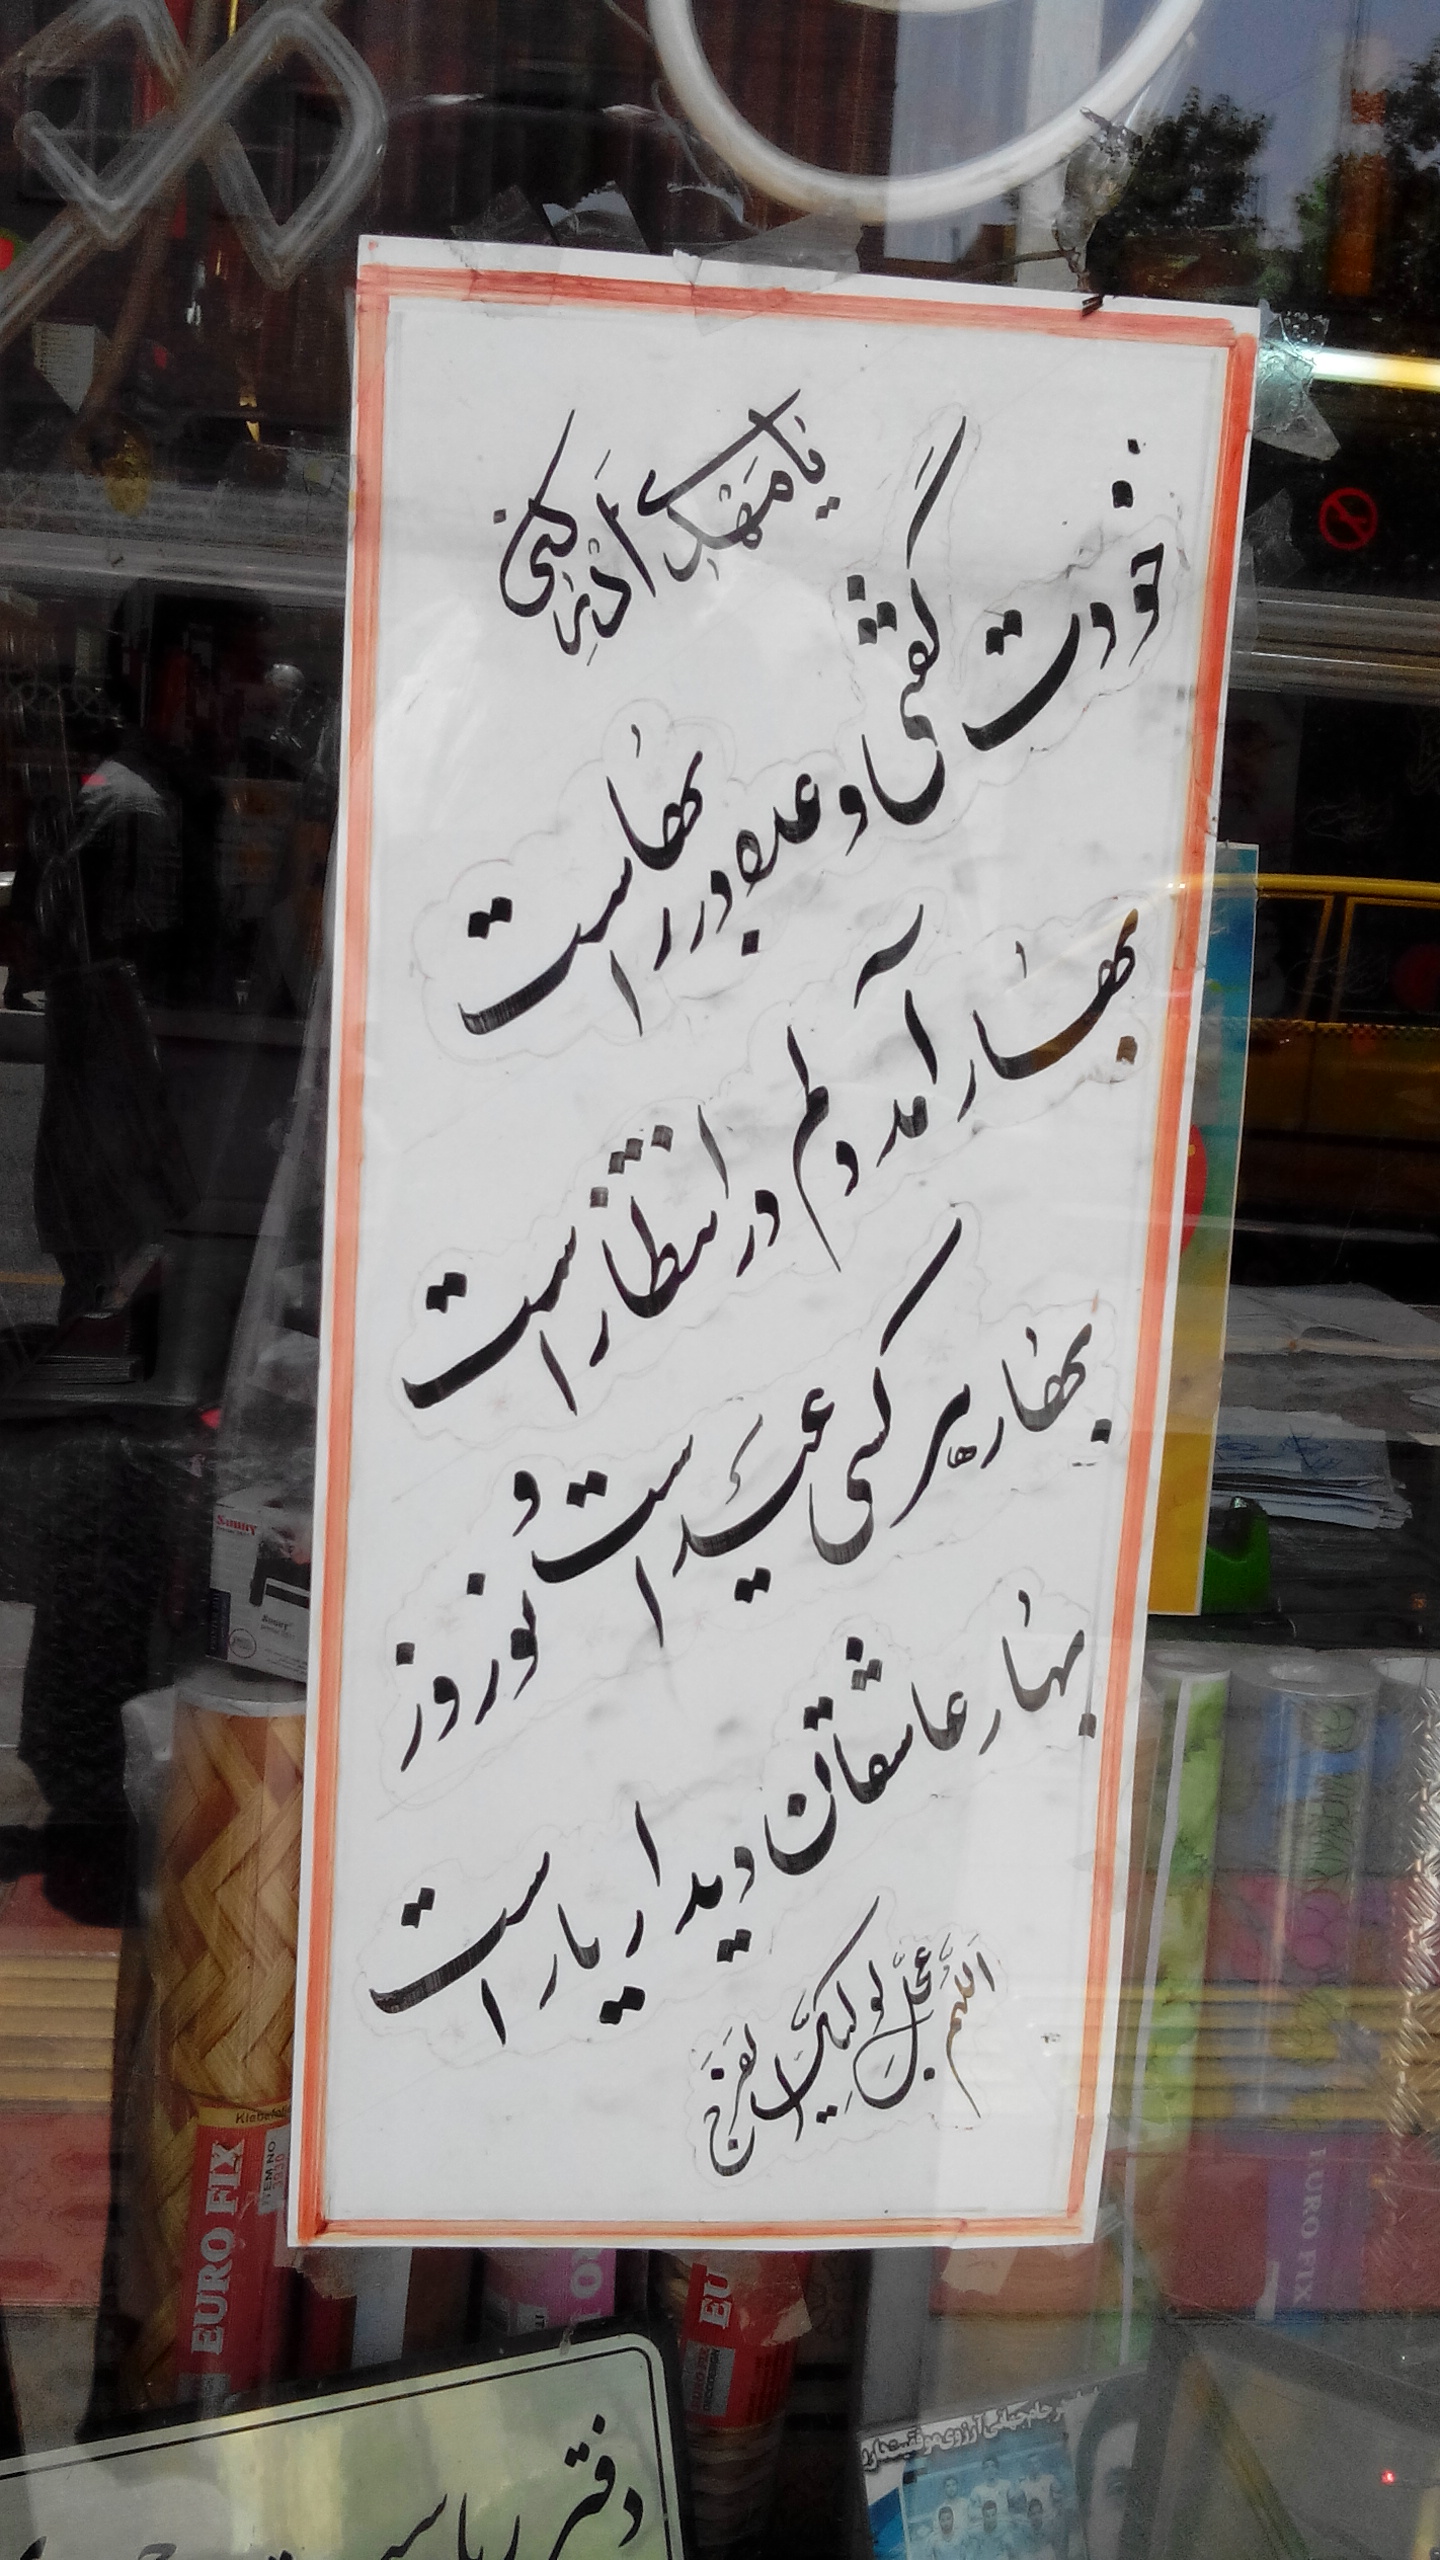 یا مَهدی اَدْرِکنی
خودت گفتی وعده در بهار است
بهار آمد دلم در انتظار است
بهار هر کسی عید است و نوروز
بهار عاشقان دیدار یار است
اللهم عجل لولیک الفرج
EURO FIX
ITEM NO
EURO FIX
دفتر ریاست